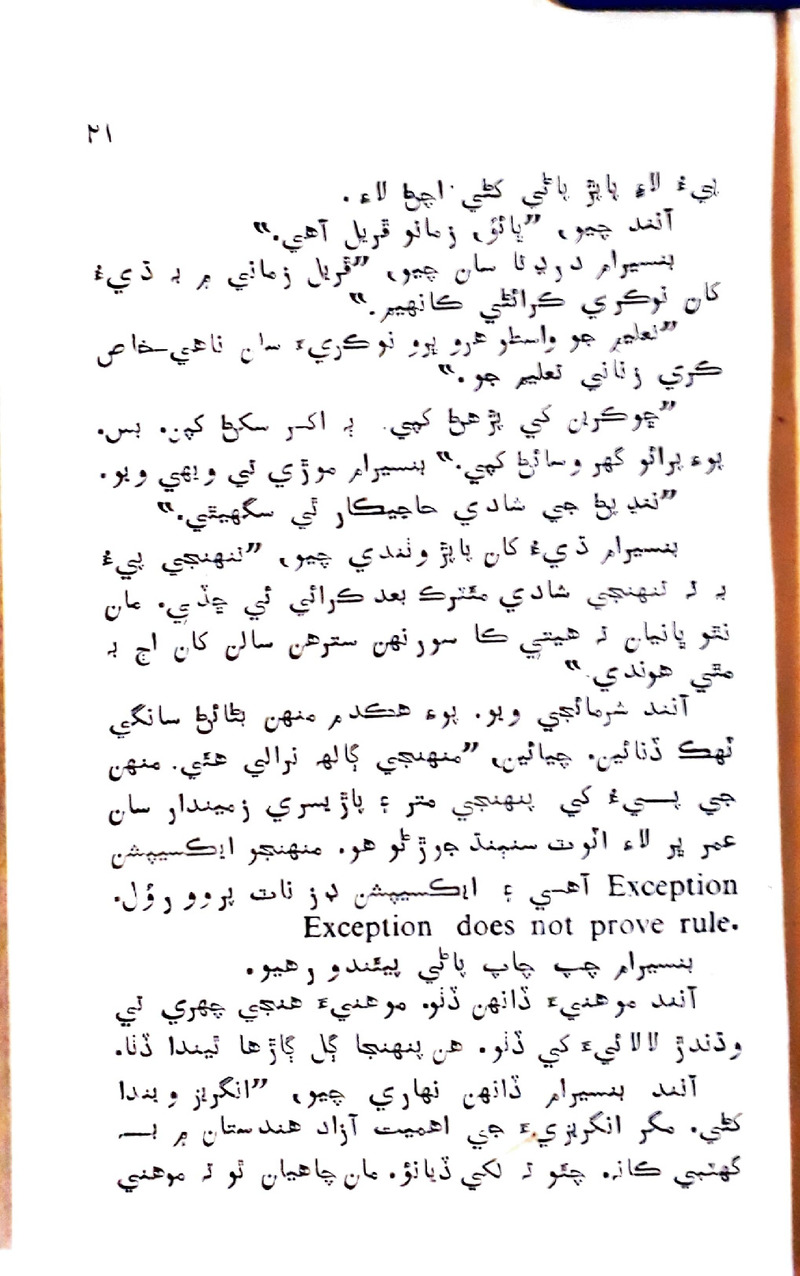 ٢١
پيءُ لاءِ پاپڙ پاڻي کڻي اچڻ لاءِ.
آنند چيو، ”ڀائو، زمانو ڦريل آهي.“
بنسيرام درڍتا سان چيو، ”ڦريل زماني ۾ بہ ڌيءُ
کان نوڪري ڪرائڻي ڪانهيم.“
”تعليم جو واسطو هروڀرو نوڪريءَ سان ناهي_خاص
ڪري زناني تعليم جو.“
”ڇوڪرين کي پڙهڻ کپي. ٻہ اکر سکڻ کپن. بس.
پوءِ پرائو گهر وسائڻ کپي.“ بنسيرام موڙي تي ويهي ويو.
”ننڍپڻ جي شادي هاڃيڪار ٿي سگهيٿي.“
بنسيرام ڌيءُ کان پاپڙ وٺندي چيو، ”تنهنجي پيءُ
بہ تہ تنهنجي شادي مئٽرڪ بعد ڪرائي ئي ڇڏي. مان
نٿو ڀانيان تہ هيتي ڪا سورنهن سترهن سالن کان اڄ بہ
مٿي هوندي.“
آنند شرمائجي ويو. پوءِ هڪدم منهن بڻائڻ سانگي
ٽهڪ ڏنائين. چيائين، ”منهنجي ڳالهہ نرالي هئي. منهن
جي پيءُ کي پنهنجي متر ۽ پاڙيسري زميندار سان
عمر ڀر لاءِ اٽوٽ سنٻنڌ جوڙڻو هو. منهنجو ايڪسيپشن
Exception آهي ۽ ايڪسيپشن ڊز ناٽ پروو رؤل.
Exception does not prove rule.
بنسيرام چپ چاپ پاڻي پيئندو رهيو.
آنند موهنيءَ ڏانهن ڏٺو. موهنيءَ هنجي چهري تي
وڌندڙ لالائيءَ کي ڏٺو. هن پنهنجا ڳل ڳاڙها ٿيندا ڏٺا.
آنند بنسيرام ڏانهن نهاري چيو، ”انگريز ويندا
کڻي. مگر انگريزيءَ جي اهميت آزاد هندستان ۾ بہ
گهٽبي ڪانہ. چئو تہ لکي ڏيانؤ. مان چاهيان ٿو تہ موهني